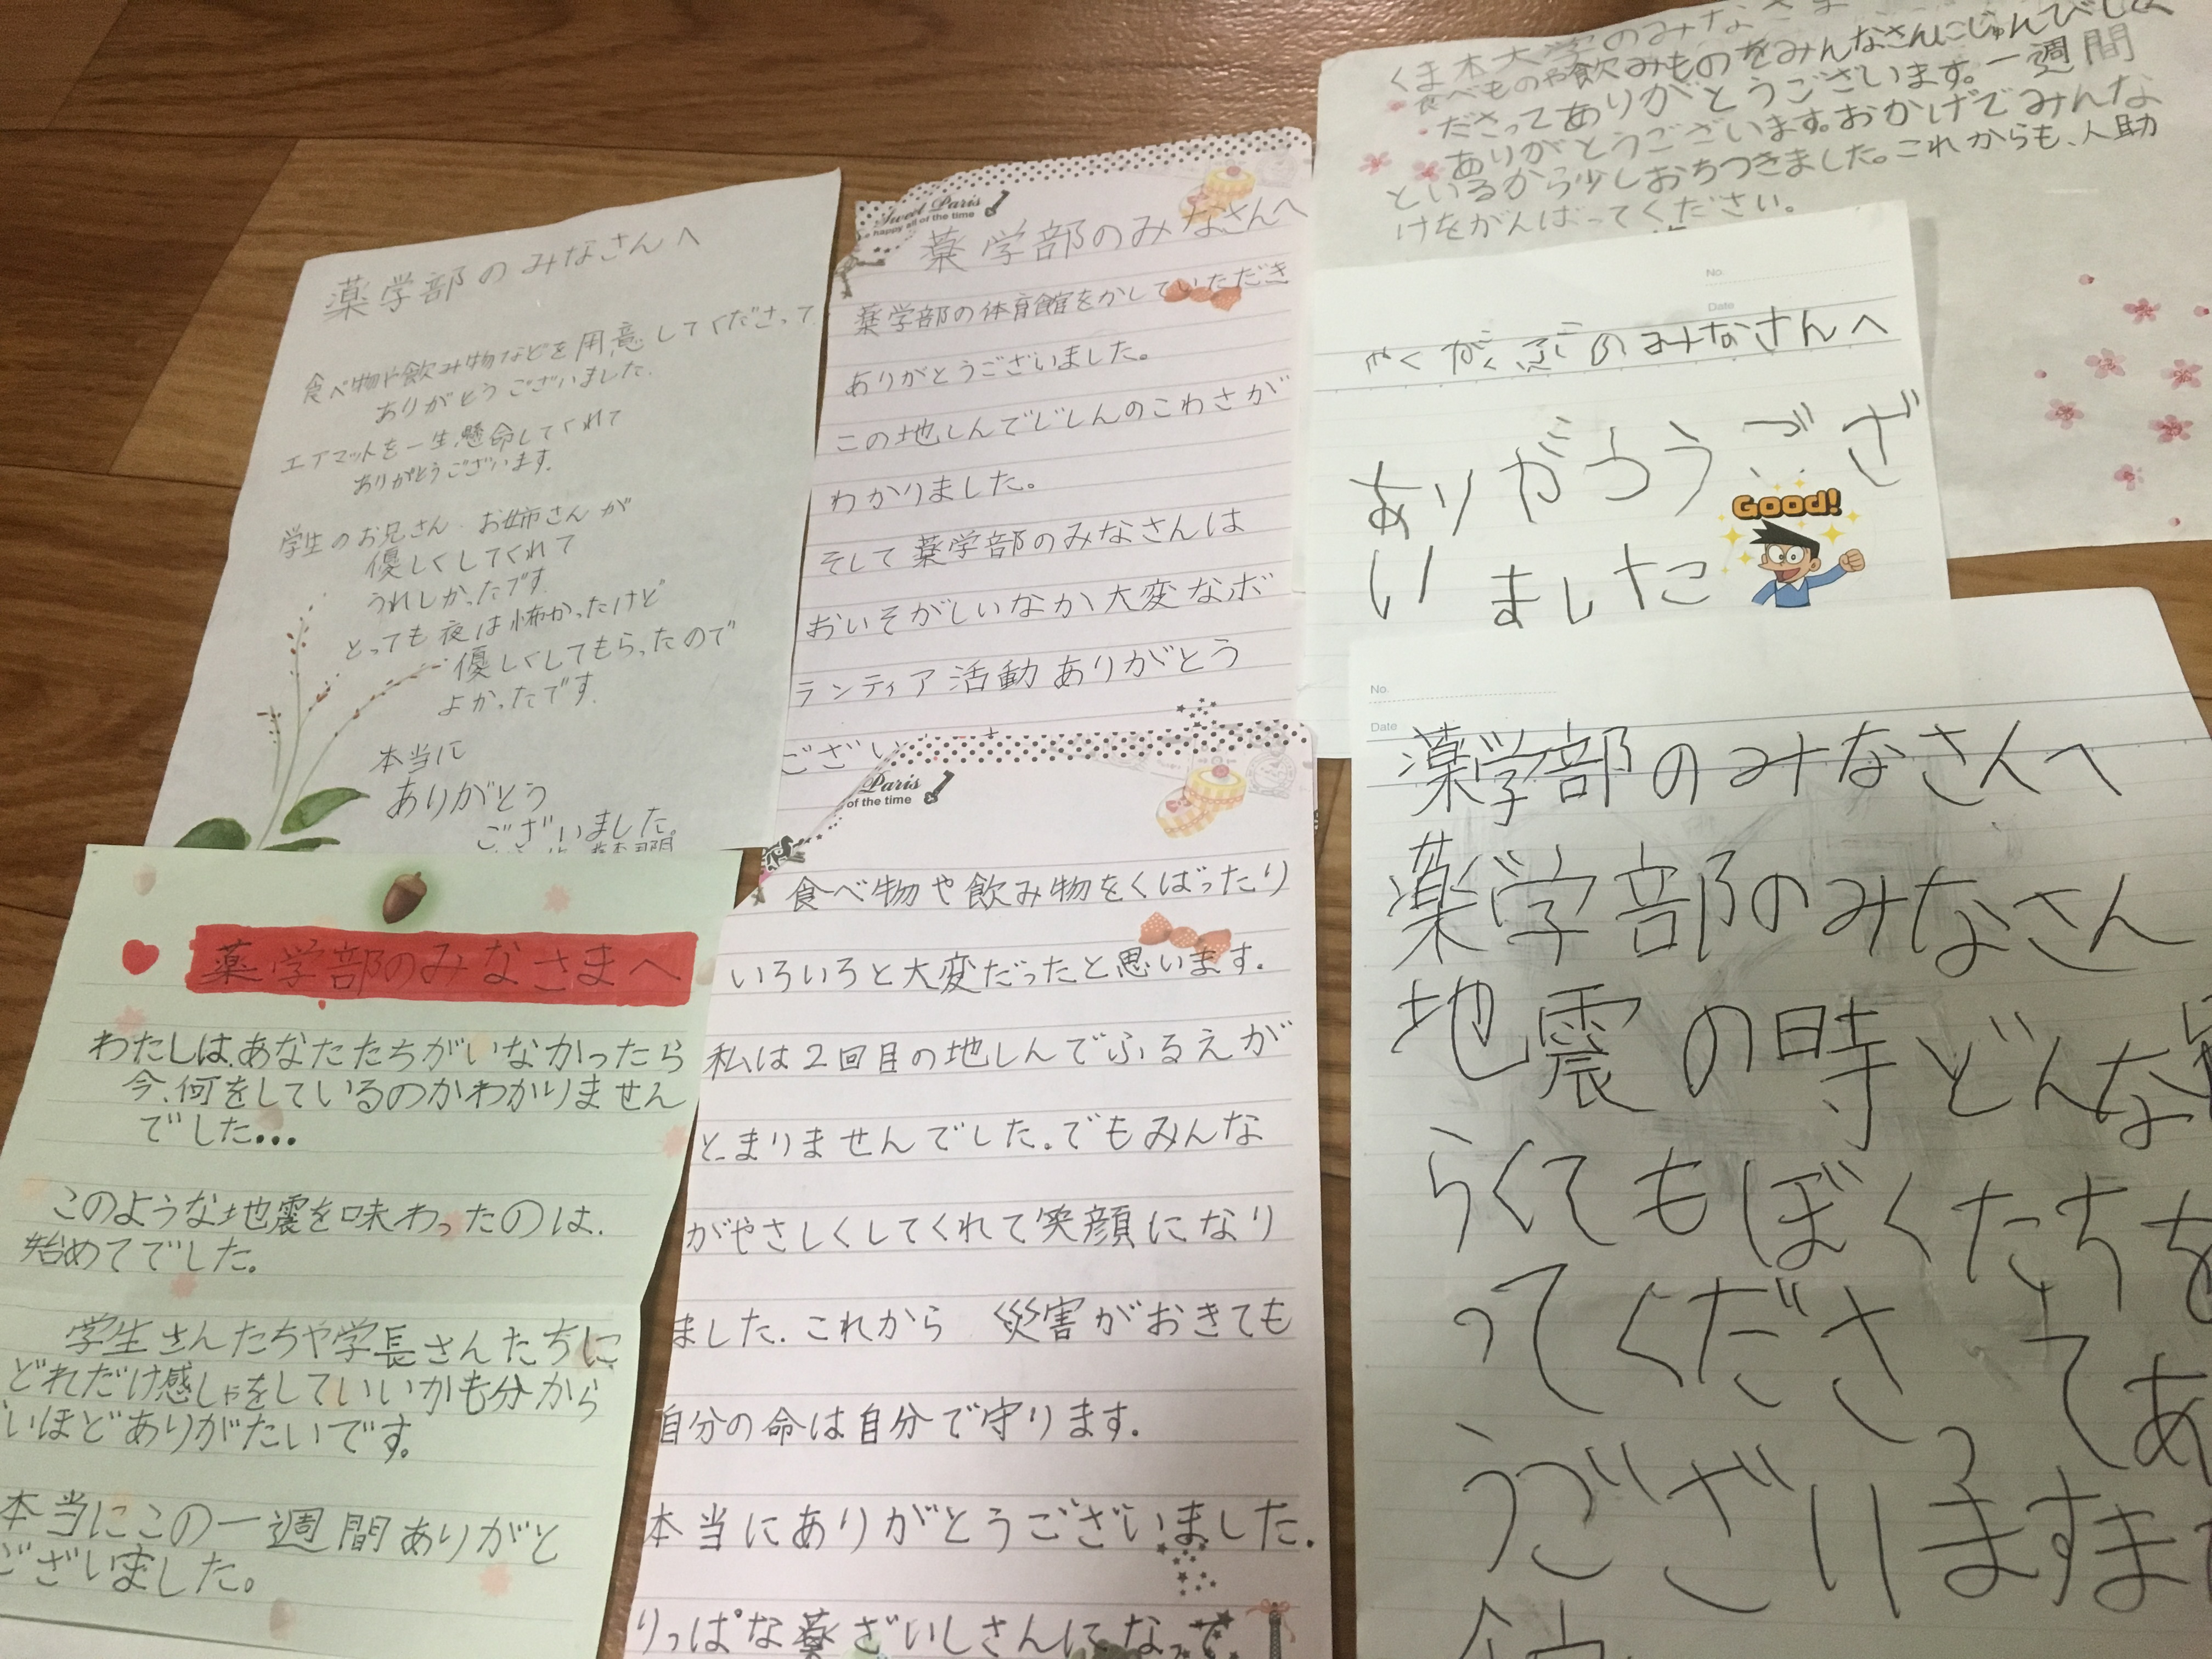 薬学部のみなさんへ
食べ物や飲み物などを用意してくださって
ありがとうございました.
エアマットを一生懸命してくれて
ありがとうございます.
学生のお兄さん お姉さんが
優しくしてくれて
うれしかったです.
とっても夜は怖かったけど
優しくしてもらったので
よかったです.
本当に
ありがとう
ございました。
Sweet Paris
happy all of the time
薬学部のみなさんへ
薬学部の体育館をかしていただき
ありがとうございました。
この地しんでじしんのこわさが
わかりました。
そして薬学部のみなさんは
おいそがしいなか大変なボ
ランティア活動ありがとう
ござい
くま本大学のみなさま
食べものや飲みものをみんなさんにじゅんびしてく
ださってありがとうございます。一週間
ありがとうございます。おかげでみんな
といるから少しおちつきました。これからも、人助
けをがんばってください。
No.
Date
やくがくぶのみなさんへ
ありがとうござ
いました
Good!
薬学部のみなさまへ
わたしは、あなたたちがいなかったら
今、何をしているのかわかりません
でした...
このような地震を味わったのは、
始めてでした。
学生さんたちや学長さんたちに
どれだけ感しゃをしていいかも分から
いほどありがたいです。
本当にこの一週間ありがと
ございました。
Paris
of the time
食べ物や飲み物をくばったり
いろいろと大変だったと思います.
私は2回目の地しんでふるえが
とまりませんでした.でもみんな
がやさしくしてくれて笑顔になり
ました.これから 災害がおきても
自分の命は自分で守ります.
本当にありがとうございました.
りっぱな薬ざいしさんになって
No.
Date
薬学部のみなさんへ
薬学部のみなさん
地震の時どんな
らくてもぼくたちを
ってくださってあ
うございますま